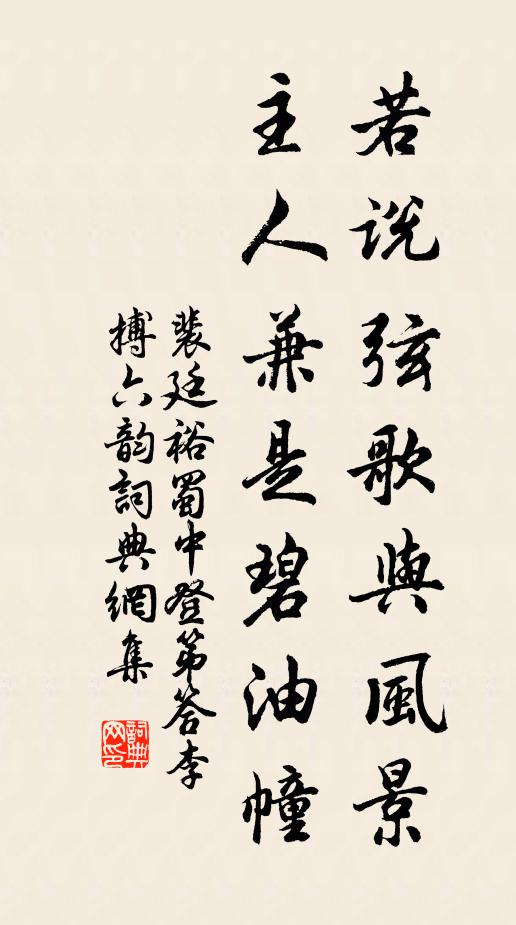 若説弦歌與風景
主人兼是碧油幢
裴廷裕蜀中登第答李
搏六韵詞典網集
詞典
网印